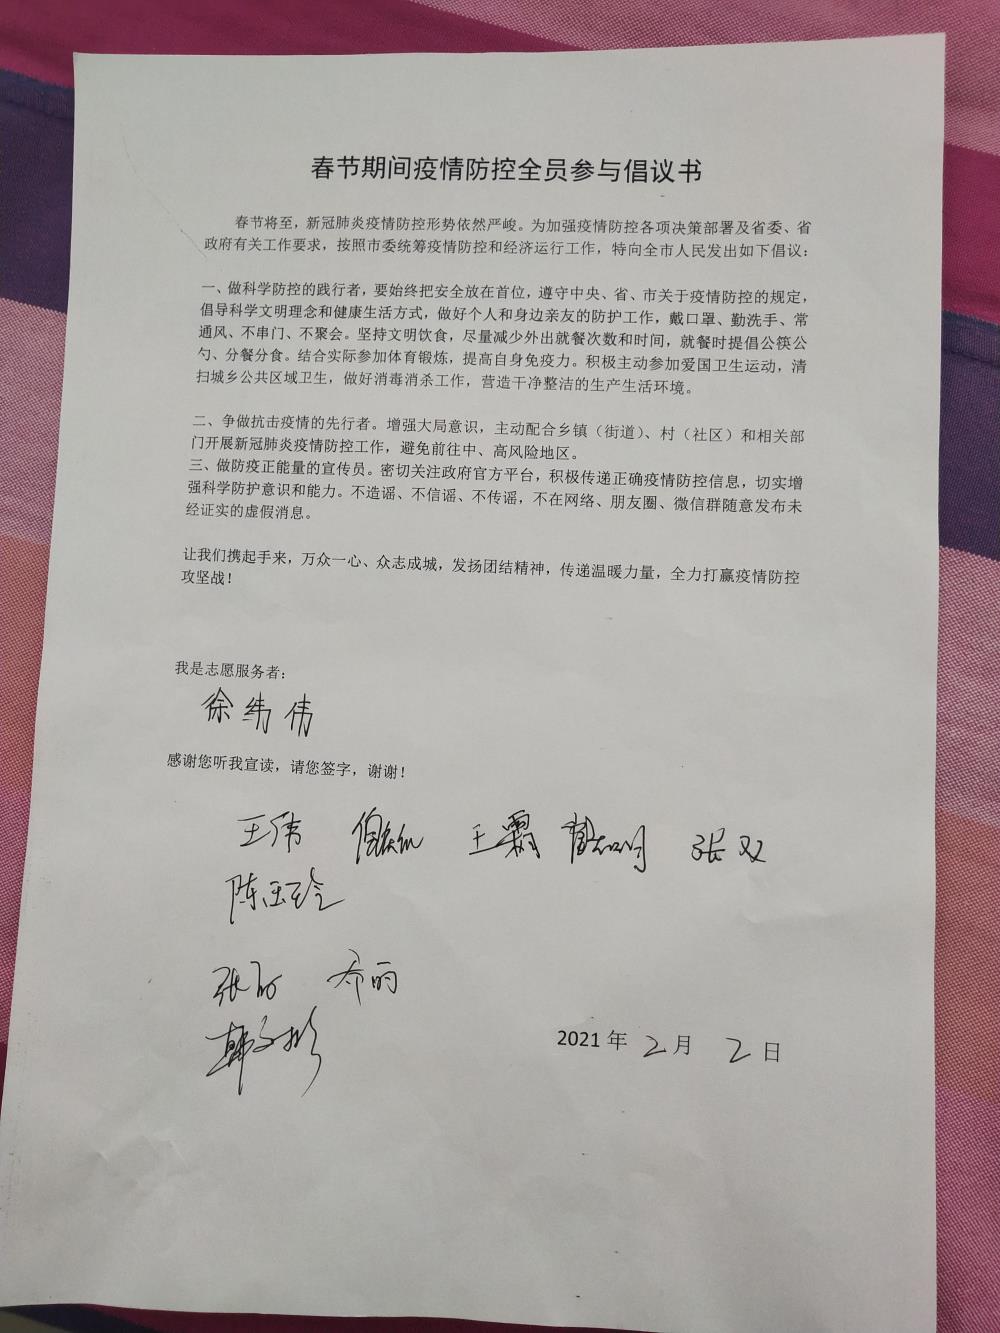 春节期间疫情防控全员参与倡议书
春节将至，新冠肺炎疫情防控形势依然严峻。为加强疫情防控各项决策部署及省委、省
政府有关工作要求，按照市委统筹疫情防控和经济运行工作，特向全市人民发出如下倡议：
一、做科学防控的践行者，要始终把安全放在首位，遵守中央、省、市关于疫情防控的规定，
倡导科学文明理念和健康生活方式，做好个人和身边亲友的防护工作，戴口罩、勤洗手、常
通风、不串门、不聚会。坚持文明饮食，尽量减少外出就餐次数和时间，就餐时提倡公筷公
勺、分餐分食。结合实际参加体育锻炼，提高自身免疫力。积极主动参加爱国卫生运动，清
扫城乡公共区域卫生，做好消毒消杀工作，营造干净整洁的生产生活环境。
二、争做抗击疫情的先行者。增强大局意识，主动配合乡镇（街道）、村（社区）和相关部
门开展新冠肺炎疫情防控工作，避免前往中、高风险地区。
三、做防疫正能量的宣传员。密切关注政府官方平台，积极传递正确疫情防控信息，切实增
强科学防护意识和能力。不造谣、不信谣、不传谣，不在网络、朋友圈、微信群随意发布未
经证实的虚假消息。
让我们携起手来，万众一心、众志成城，发扬团结精神，传递温暖力量，全力打赢疫情防控
攻坚战！
我是志愿服务者：
徐纬伟
感谢您听我宣读，请您签字，谢谢！
王伟 王霜 张双
陈玉玲
2021 年 2 月 2 日